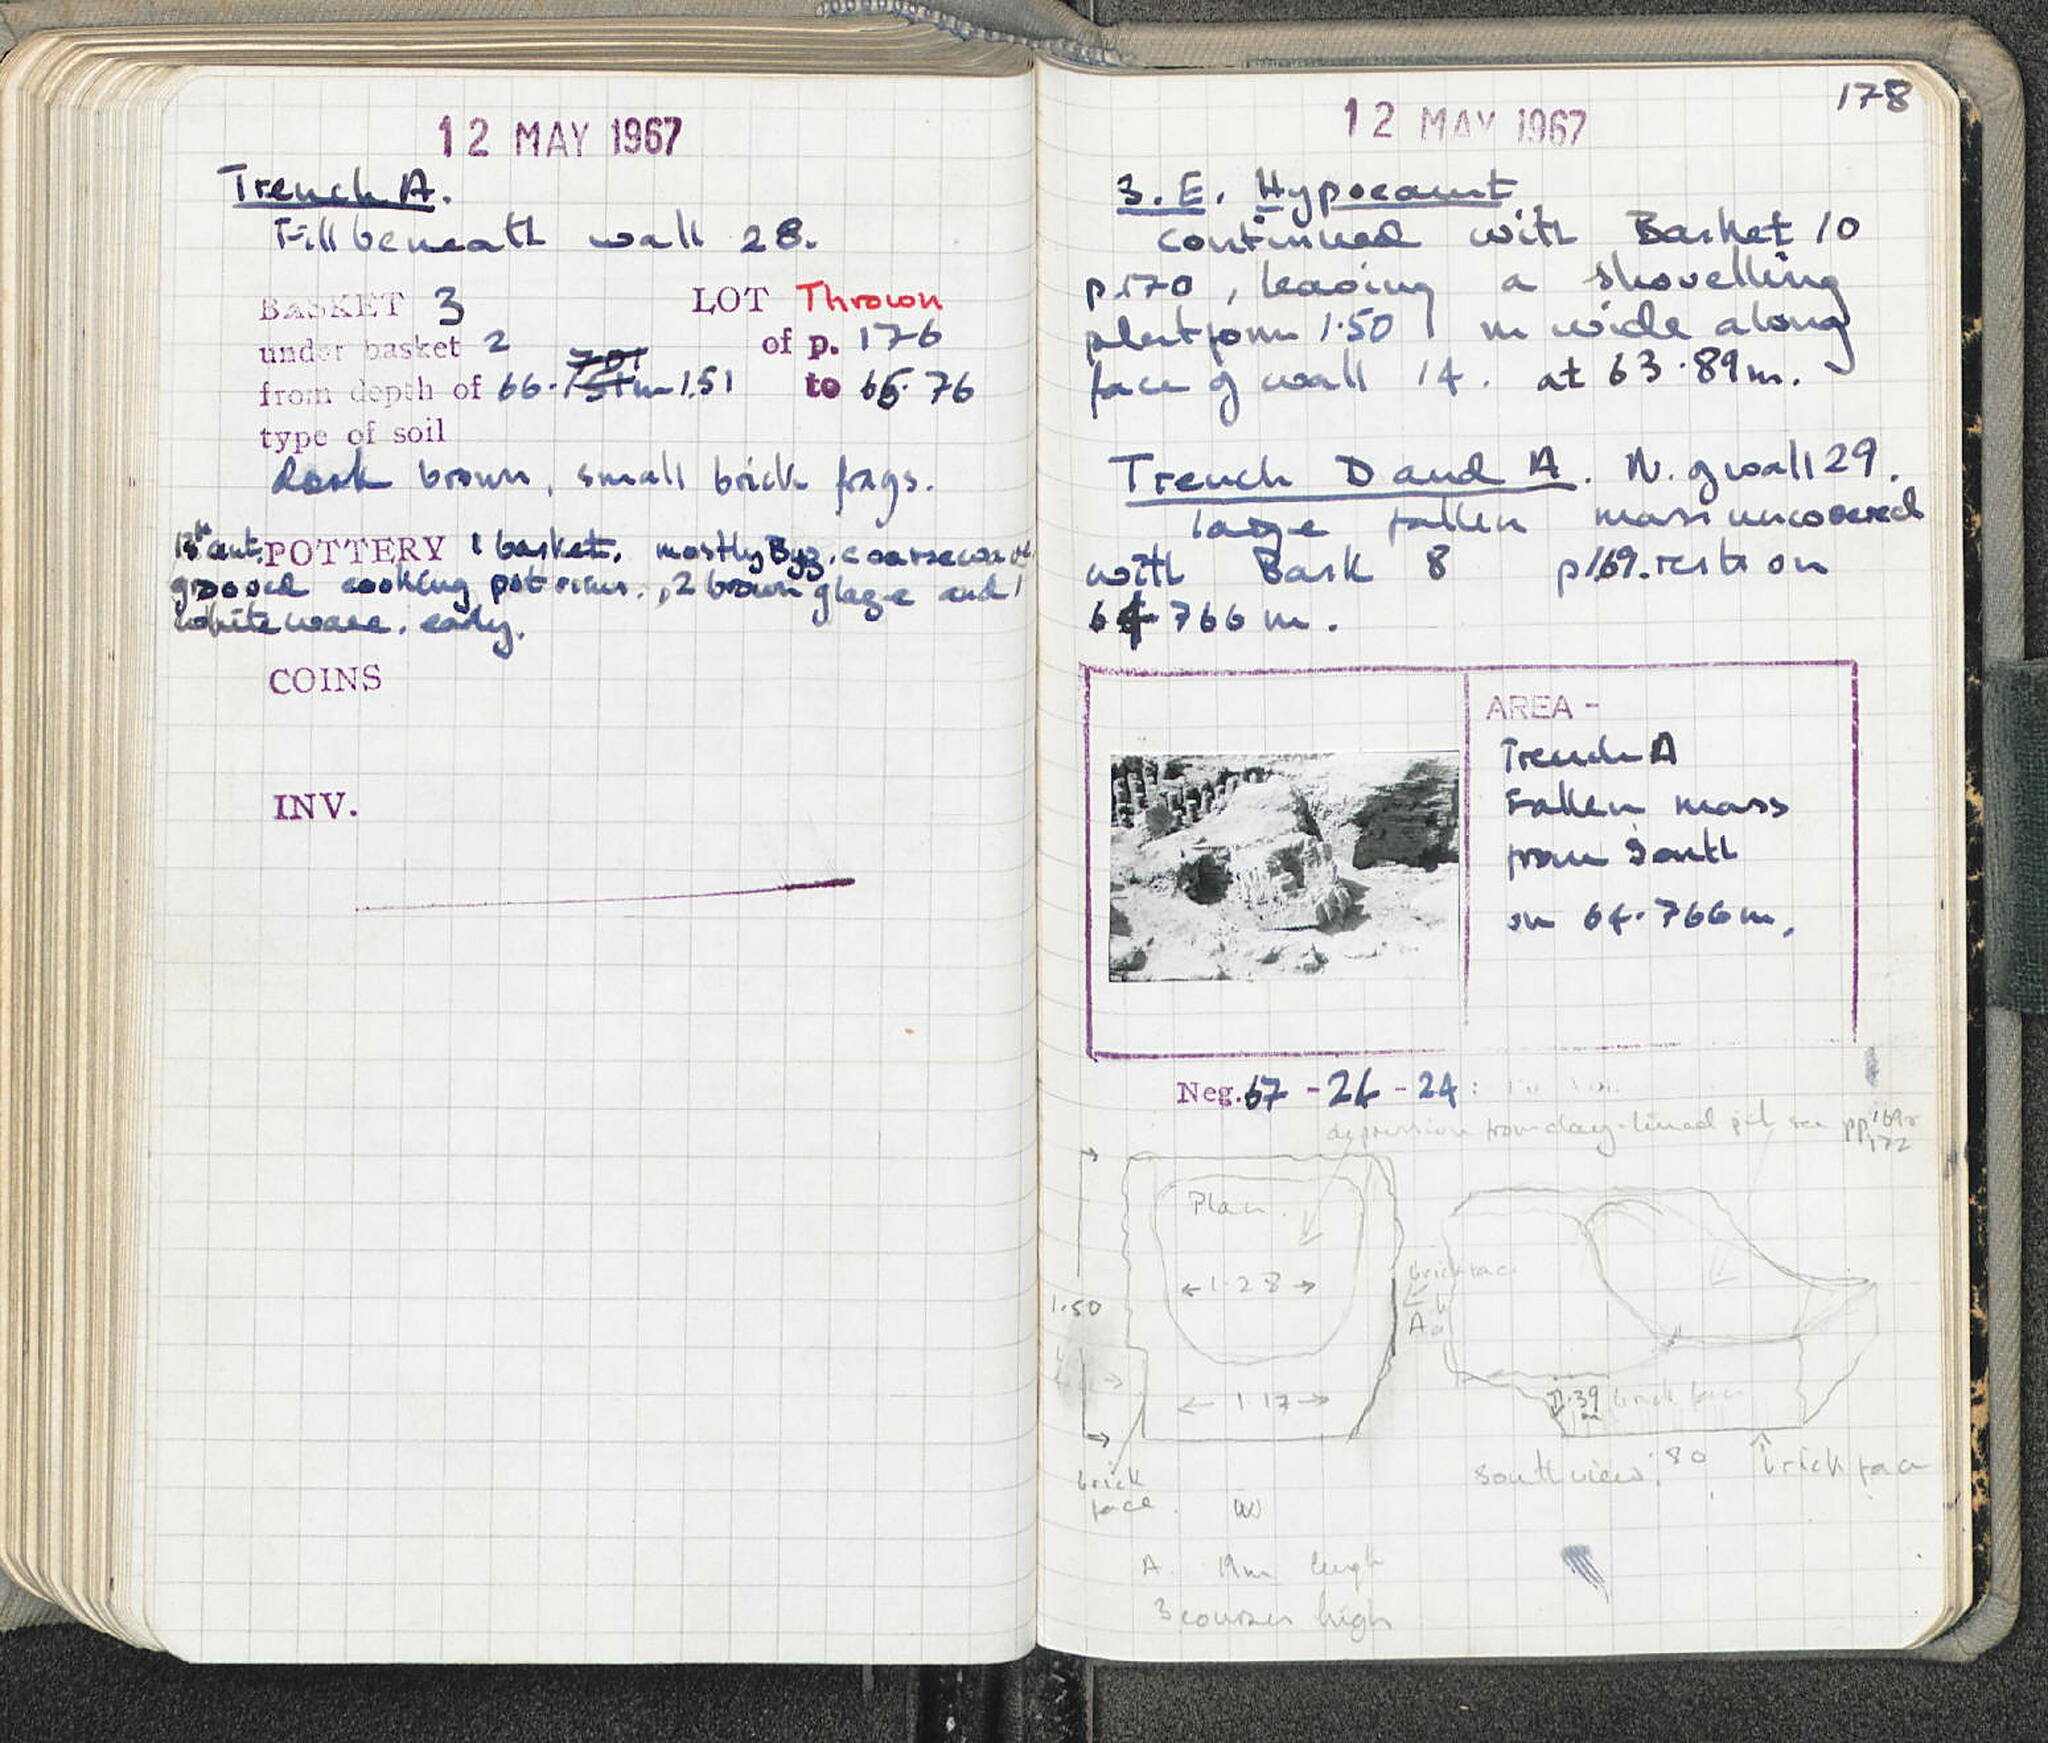 12 MAY 1967
Trench A.
Fill beneath wall 28.
BASKET 3 LOT Thrown
under basket 2 of p. 176
from depth of 66. 1.51 to 65.76
type of soil
dark brown, small brick frags.
13th cent. POTTERY 1 basket. mostly Byz. coarseware
grooved cooking pot rims., 2 brown glaze and 1
white ware. early.
COINS
INV.
178
12 MAY 1967
S.E. Hypocaust
continued with Basket 10
p.170, leaving a shovelling
platform 1.50 m wide along
face of wall 14. at 63.89m.
Trench D and A. N. of wall 29.
large fallen mass uncovered
with Bask 8 p169. rests on
64.766 m.
AREA -
Trench A
Fallen mass
from South
on 64.766m.
Neg. 67 - 26 - 24:
depression from clay-lined pit see pp 169
172
Plan.
1.28
brick face
A
1.50
1.17
.39
m
brick face
brick
face.
south view .80 brick face
A. 19m length
3 courses high